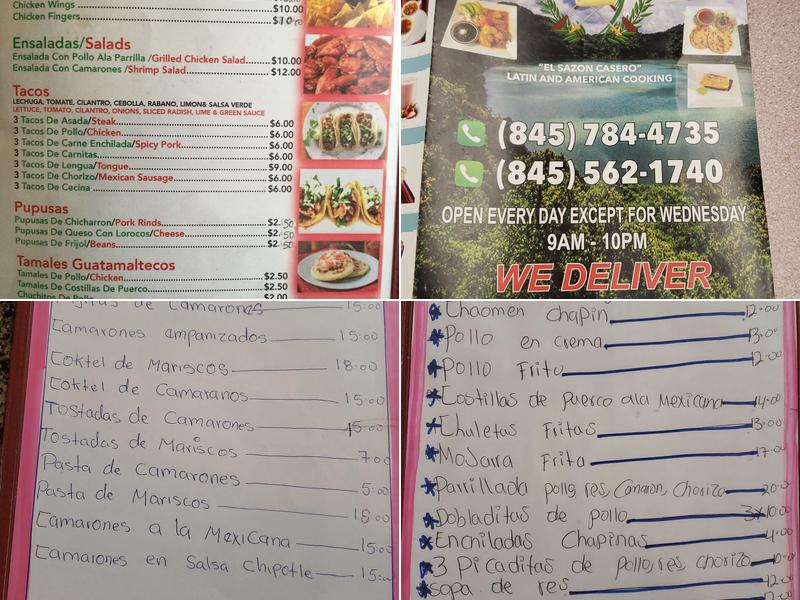 Chicken Wings $10.00
Chicken Fingers
Ensaladas/Salads
Ensalada Con Pollo Ala Parrilla /Grilled Chicken Salad $10.00
Ensalada Con Camarones /Shrimp Salad $12.00
Tacos
LECHUGA, TOMATE, CILANTRO, CEBOLLA, RABANO, LIMON& SALSA VERDE
LETTUCE, TOMATO, CILANTRO, ONIONS, SLICED RADISH, LIME & GREEN SAUCE
3 Tacos De Asada/Steak $6.00
3 Tacos De Pollo/Chicken $6.00
3 Tacos De Carne Enchilada/Spicy Pork $6.00
3 Tacos De Carnitas $6.00
3 Tacos De Lengua/Tongue $9.00
3 Tacos De Chorizo/Mexican Sausage $6.00
3 Tacos De Cecina $6.00
Pupusas
Pupusas De Chicharron/Pork Rinds $2.50
Pupusas De Queso Con Lorocos/Cheese $2.50
Pupusas De Frijol/Beans $2.50
Tamales Guatamaltecos
Tamales De Pollo/Chicken $2.50
Tamales De Costillas De Puerco $2.50
Chuchitos De Pollo $2.00
"EL SAZON CASERO"
LATIN AND AMERICAN COOKING
(845) 784-4735
(845) 562-1740
OPEN EVERY DAY EXCEPT FOR WEDNESDAY
9AM - 10PM
WE DELIVER
de Camarones 15:00
Camarones ampanizados 15:00
Coktel de Mariscos 18:00
Coktel de Camaranos 15:00
Tostadas de Camarones 15:00
Tostadas de Mariscos 7:00
Pasta de Camarones 5:00
Pasta de Mariscos 18:00
Camarones a la Mexicana 15:00
Camarones en Salsa Chipotle 15:00
Chaomen Chapin 12.00
Pollo en crema 13.00
Pollo Frito 12.00
Costillas de puerco ala Mexicana 14.00
Chuletas Fritas 13.00
Mojarra Frita 17.00
Parrillada pollo, res, Camaron, Chorizo 20.00
Dobladitas de pollo 3x10.00
Enchiladas Chapinas 4.00
3 Picaditas de pollo, res, chorizo 10.00
sopa de res 12.00